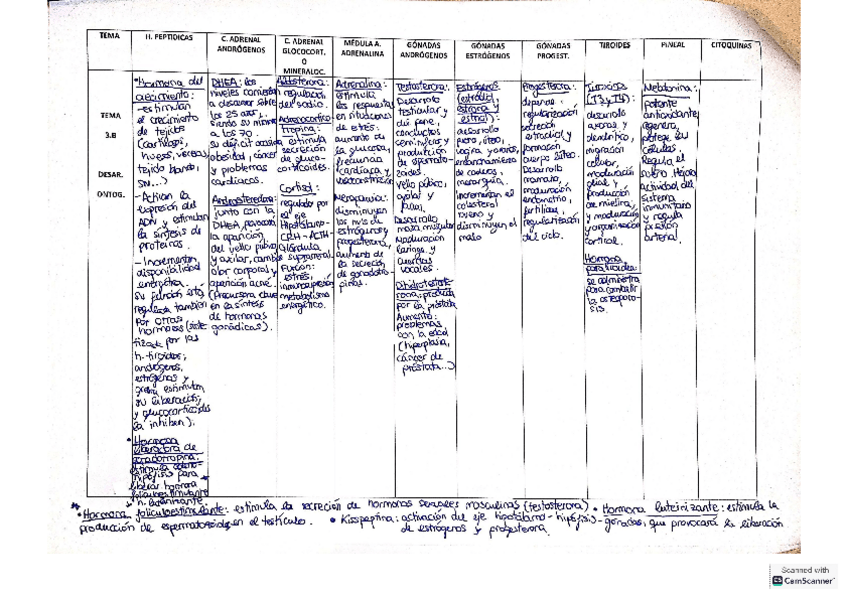 TEMA
H. PEPTIDICAS
C. ADRENAL
ANDRÓGENOS
C. ADRENAL
GLOCOCORT.
O
MINERALOC.
MÉDULA A.
ADRENALINA
GÓNADAS
ANDRÓGENOS
GÓNADAS
ESTRÓGENOS
GÓNADAS
PROGEST.
TIROIDES
PINEAL
CITOQUINAS
TEMA
3.B
DESAR.
ONTOG.
•Hormona del
crecimiento:
-estimulan
el crecimiento
de tejidos
(cartílago,
huesos, vísceras,
tejido blando,
SN...)
- Activan la
expresión del
ADN y estimulan
la síntesis de
proteínas.
- Incrementan
disponibilidad
energética.
su función está
regulada también
por otras
hormonas
por las
h. tiroides;
andrógenos,
estrógenos y
estimulan
su liberación;
y glucocorticoides
la inhiben).
• Hormona
liberadora de
gonadotropina:
estimula
hipófisis para
liberar hormona
foliculoestimulante
h. luteinizante.
DHEA: los
niveles comienzan
a descender sobre
los 25 años,
siendo su mínimo
a los 70.
su déficit ocasiona
obesidad, cáncer
y problemas
cardíacos.
junto con la
DHEA, provocará
la aparición
del vello púbico
y axilar, cambio
olor corporal y
aparición acné.
(Precursora clave
en la síntesis
de hormonas
gonádicas).
Aldosterona:
regulación
del sodio.
Adrenocortico-
tropina:
estimula
secreción
de gluco-
corticoides.
Cortisol:
regulado por
el eje
Hipotálamo-
CRH-ACTH-
Glándula
suprarrenal.
Función:
estrés,
inmunosupresión,
metabolismo
energético.
Adrenalina:
estimula
las respuestas
en situaciones
de estrés.
aumento de
la glucosa,
frecuencia
cardíaca y
vasoconstricción
disminuyen
los nivs de
estrógenos y
progesterona,
aumento de
la secreción
de gonadotro-
pinas.
Testosterona:
Desarrollo
testicular y
del pene,
conductos
seminíferos y
producción
de espermato-
zoides
vello púbico,
axilar y
facial.
Desarrollo
masa muscular
Maduración
laringe y
cuerdas
vocales.
Dihidrotestoste-
rona: producida
por la próstata
Aumento:
problemas
con la edad
(hiperplasia,
cáncer de
próstata...)
Estrógenos
(estradiol,
estrona y
estriol):
desarrollo
pecho, útero,
vagina y ovarios,
ensanchamiento
de caderas,
menarquia.
incrementan el
colesterol
bueno y
disminuyen el
malo
Progesterona:
depende
regularización
secreción
estradiol y
formación
cuerpo lúteo.
Desarrollo
mamario,
maduración
endometrio,
fertilidad,
regularización
del ciclo.
Tiroxina
(T3 y T4):
desarrollo
axonal y
dendrítico,
migración
celular,
maduración
glial y
producción
de mielina,
y modulación
y organización
cortical.
Hormona
paratiroidea:
se administra
para combatir
la osteoporo-
sis.
Melatonina:
potente
antioxidante,
regenera,
protege su
células.
Regula el
sueño. Mejora
actividad del
sistema
inmunitario
y regula
presión
arterial.
• Hormona foliculoestimulante: estimula la secreción de hormonas sexuales masculinas (testosterona) • Hormona luteinizante: estimula la
producción de espermatozoides en el testículo. • Kisspeptina: activación del eje hipotálamo-hipófisis-gónadas, que provocará la liberación
de estrógenos y progesterona
Scanned with
CS CamScanner